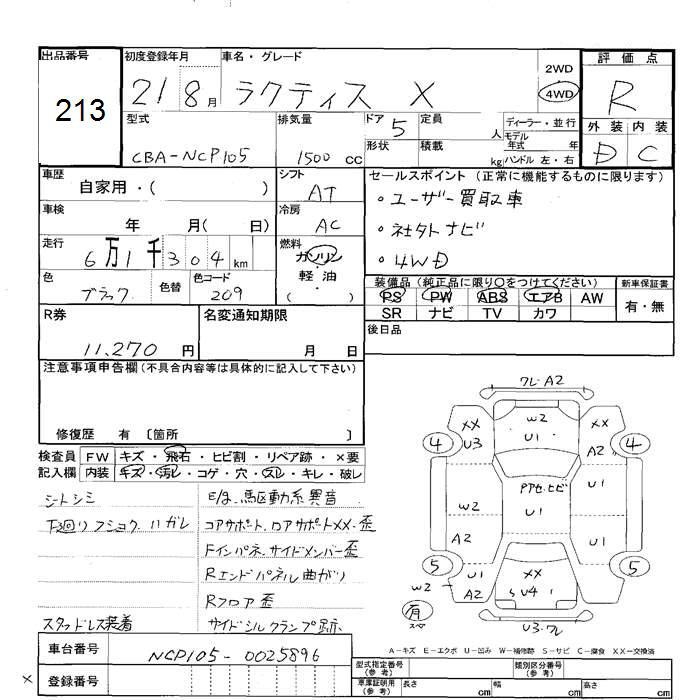 出品番号
213
初度登録年月
21 8月
車名・グレード
ラクティス X
2WD
4WD
評価点
R
外装 内装
D C
型式
CBA-NCP105
排気量
1500 cc
ドア 5
定員 人
形状
積載 kg
ディーラー・並行
モデル年式 年
ハンドル 左・右
車歴
自家用・( )
シフト
AT
車検
年 月( 日)
冷房
AC
走行
6万1千304km
燃料
ガソリン
・
軽・油
( )
色
ブラック
色替
色コード
209
セールスポイント(正常に機能するものに限ります)
・ユーザー買取車
・社外ナビ
・4WD
装備品(純正品に限り〇をつけてください)
PS PW ABS エアB AW
SR ナビ TV カワ
新車保証書
有・無
後日品
R券
11,270 円
名変通知期限
月 日
注意事項申告欄(不具合内容等は具体的に記入して下さい)
修復歴 有 〔箇所 〕
検査員記入欄
FW キズ・飛石・ヒビ割・リペア跡・×要
内装 キズ・汚レ・コゲ・穴・スレ・キレ・破レ
シートシミ
下廻りフショク ハガレ
スタッドレス装着
E/g、駆動系異音
コアサポート、ロアサポートXX・歪
Fインパネ、サイドメンバー歪
Rエンドパネル曲がり
Rフロア歪
サイドシルクランプ跡
ワレ A2
W2
U1
XX
U3
4
XX
A2
4
U1
W2
U1
A2
U1
5
5
U1
A2
W2
XX
U4
U1
有
スペア
U3・ワレ
A-キズ E-エクボ U-凹み W-補修跡 S-サビ C-腐食 XX-交換済
車台番号
NCP105-0025896
× 登録番号
型式指定番号
(参考)
類別区分番号
(参考)
車庫証明用
(参考)
長さ cm
幅 cm
高さ cm